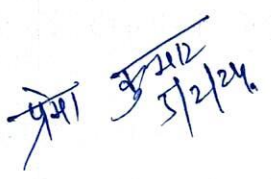 प्रेमा कुमार
5/2/24.